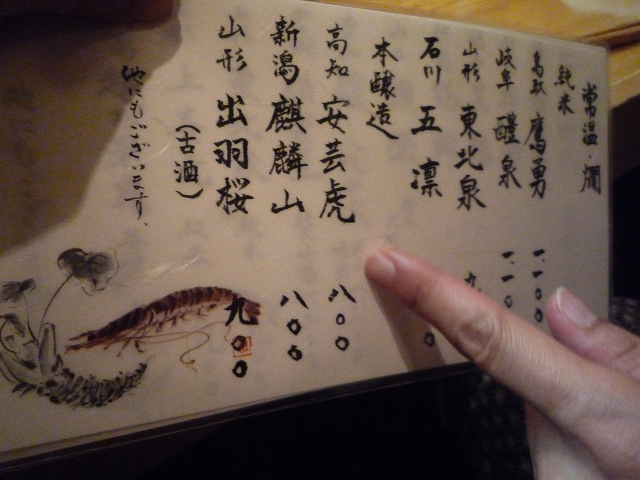 常温・燗
純米
鳥取 鷹勇 一、一〇〇
岐阜 醴泉 一、一〇
山形 東北泉 九
石川 五凛 〇
本醸造
高知 安芸虎 八〇〇
新潟 麒麟山 八〇〇
山形 出羽桜 九〇〇
(古酒)
他にもございます。